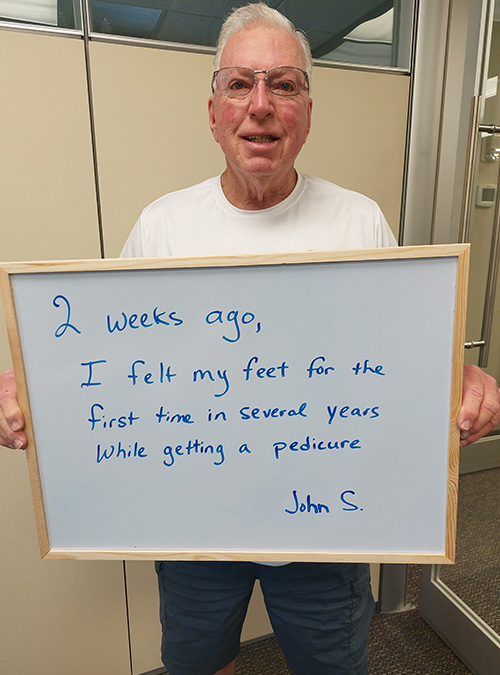 2 weeks ago,
I felt my feet for the
first time in several years
While getting a pedicure
John S.